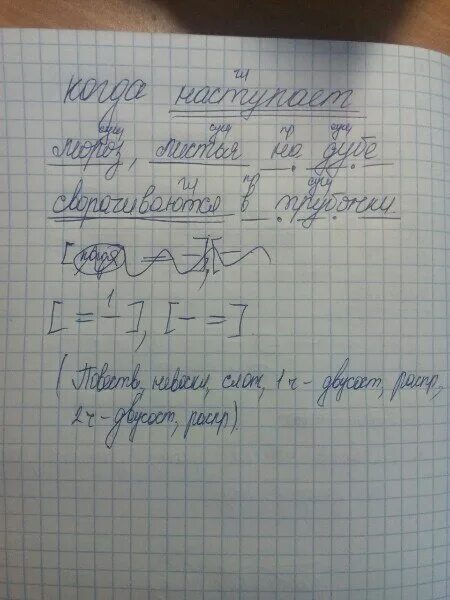 гл
когда наступает
сущ сущ пр сущ
мороз, листья на дубе
гл пр сущ
сворачиваются в трубочки.
[когда = –], [–
1
[= –], [– =].
(Повеств, невоскл, слож, 1ч – двусост, распр,
2ч – двусост, распр).